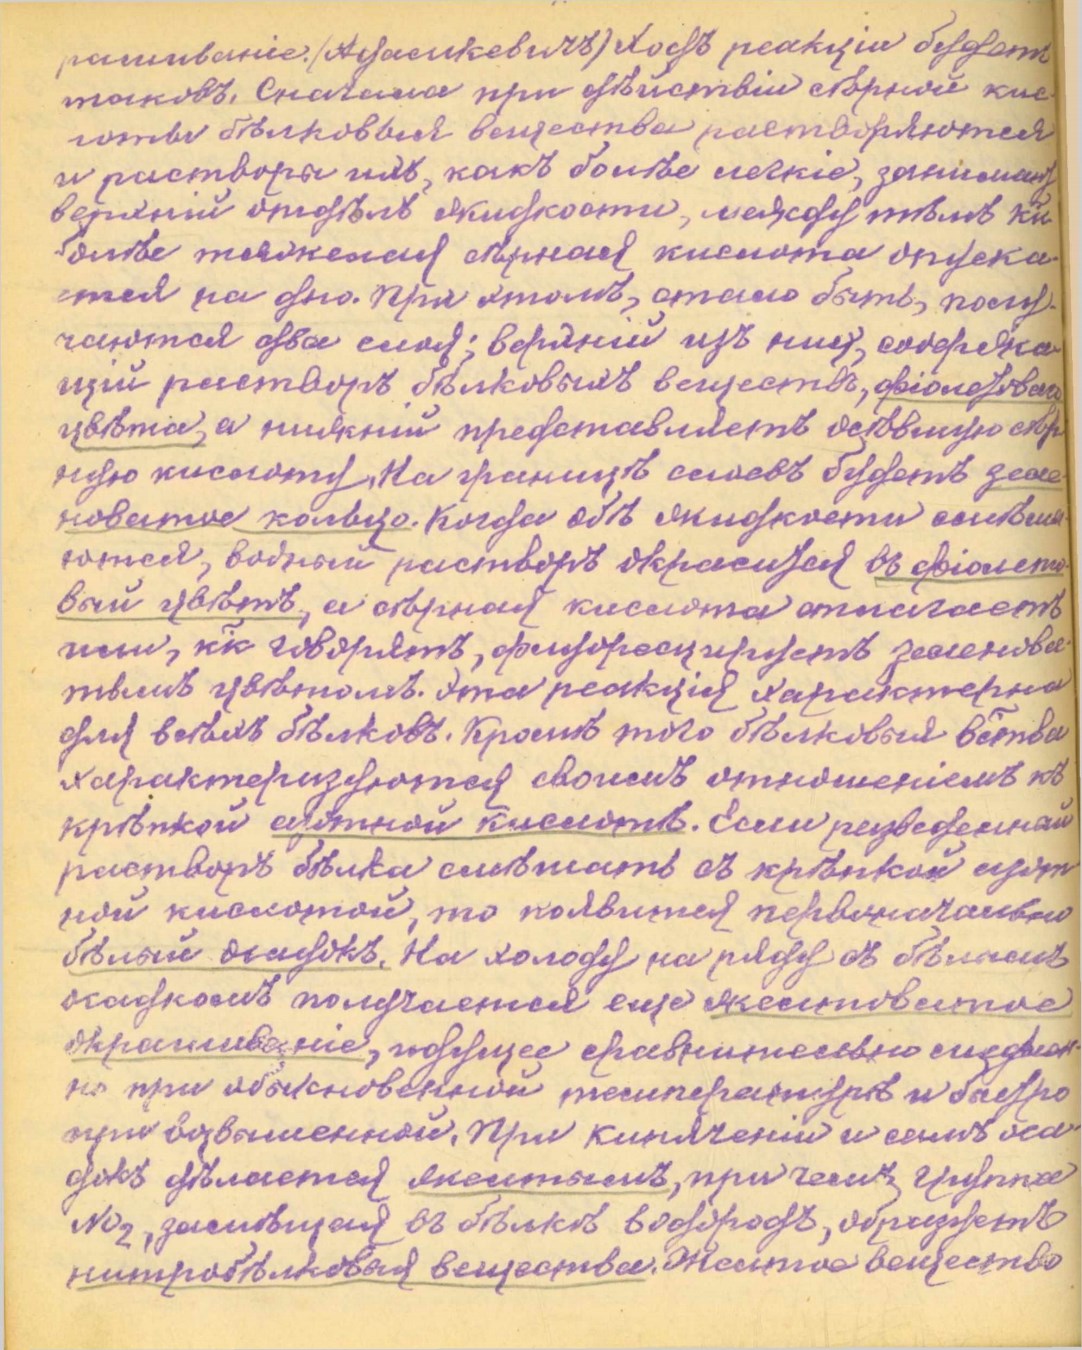 рашиваніе. (Адамкевичъ) Ходъ реакціи будетъ
таковъ. Сначала при дѣйствіи сѣрной кис-
лоты бѣлковыя вещества растворяются
и растворы ихъ, какъ болѣе легкіе, занимаютъ
верхній отдѣлъ жидкости, между тѣмъ кк
болѣе тяжелая сѣрная кислота опуска-
ется на дно. При этомъ, стало быть, полу-
чаются два слоя; верхній изъ нихъ, содержа-
щій растворъ бѣлковыхъ веществъ, фіолетоваго
цвѣта, а нижній представляетъ осѣвшую сѣр
ную кислоту. На границѣ слоевъ будетъ зеле-
новатое кольцо. Когда обѣ жидкости смѣша-
ются, водный растворъ окрасится въ фіолето-
вый цвѣтъ, а сѣрная кислота отличаетъ
или, кк говорятъ, флуоресцируетъ зеленова-
тымъ цвѣтомъ. Эта реакція характерна
для всѣхъ бѣлковъ. Кромѣ того бѣлковыя вства
характеризуются своимъ отношеніемъ къ
крѣпкой азотной кислотѣ. Если разведенный
растворъ бѣлка смѣшать съ крѣпкой азот
ной кислотой, то появится первоначально
бѣлый осадокъ. На холоду на ряду съ бѣлымъ
осадкомъ получается еще желтоватое
окрашиваніе, идущее сравнительно медлен-
но при обыкновенной температурѣ и быстро
при возвышенной. При кипяченіи и самъ оса
докъ дѣлается желтымъ, при чемъ группа
NO2, замѣщая въ бѣлкѣ водородъ, образуетъ
нитробѣлковыя вещества. Желтое вещество